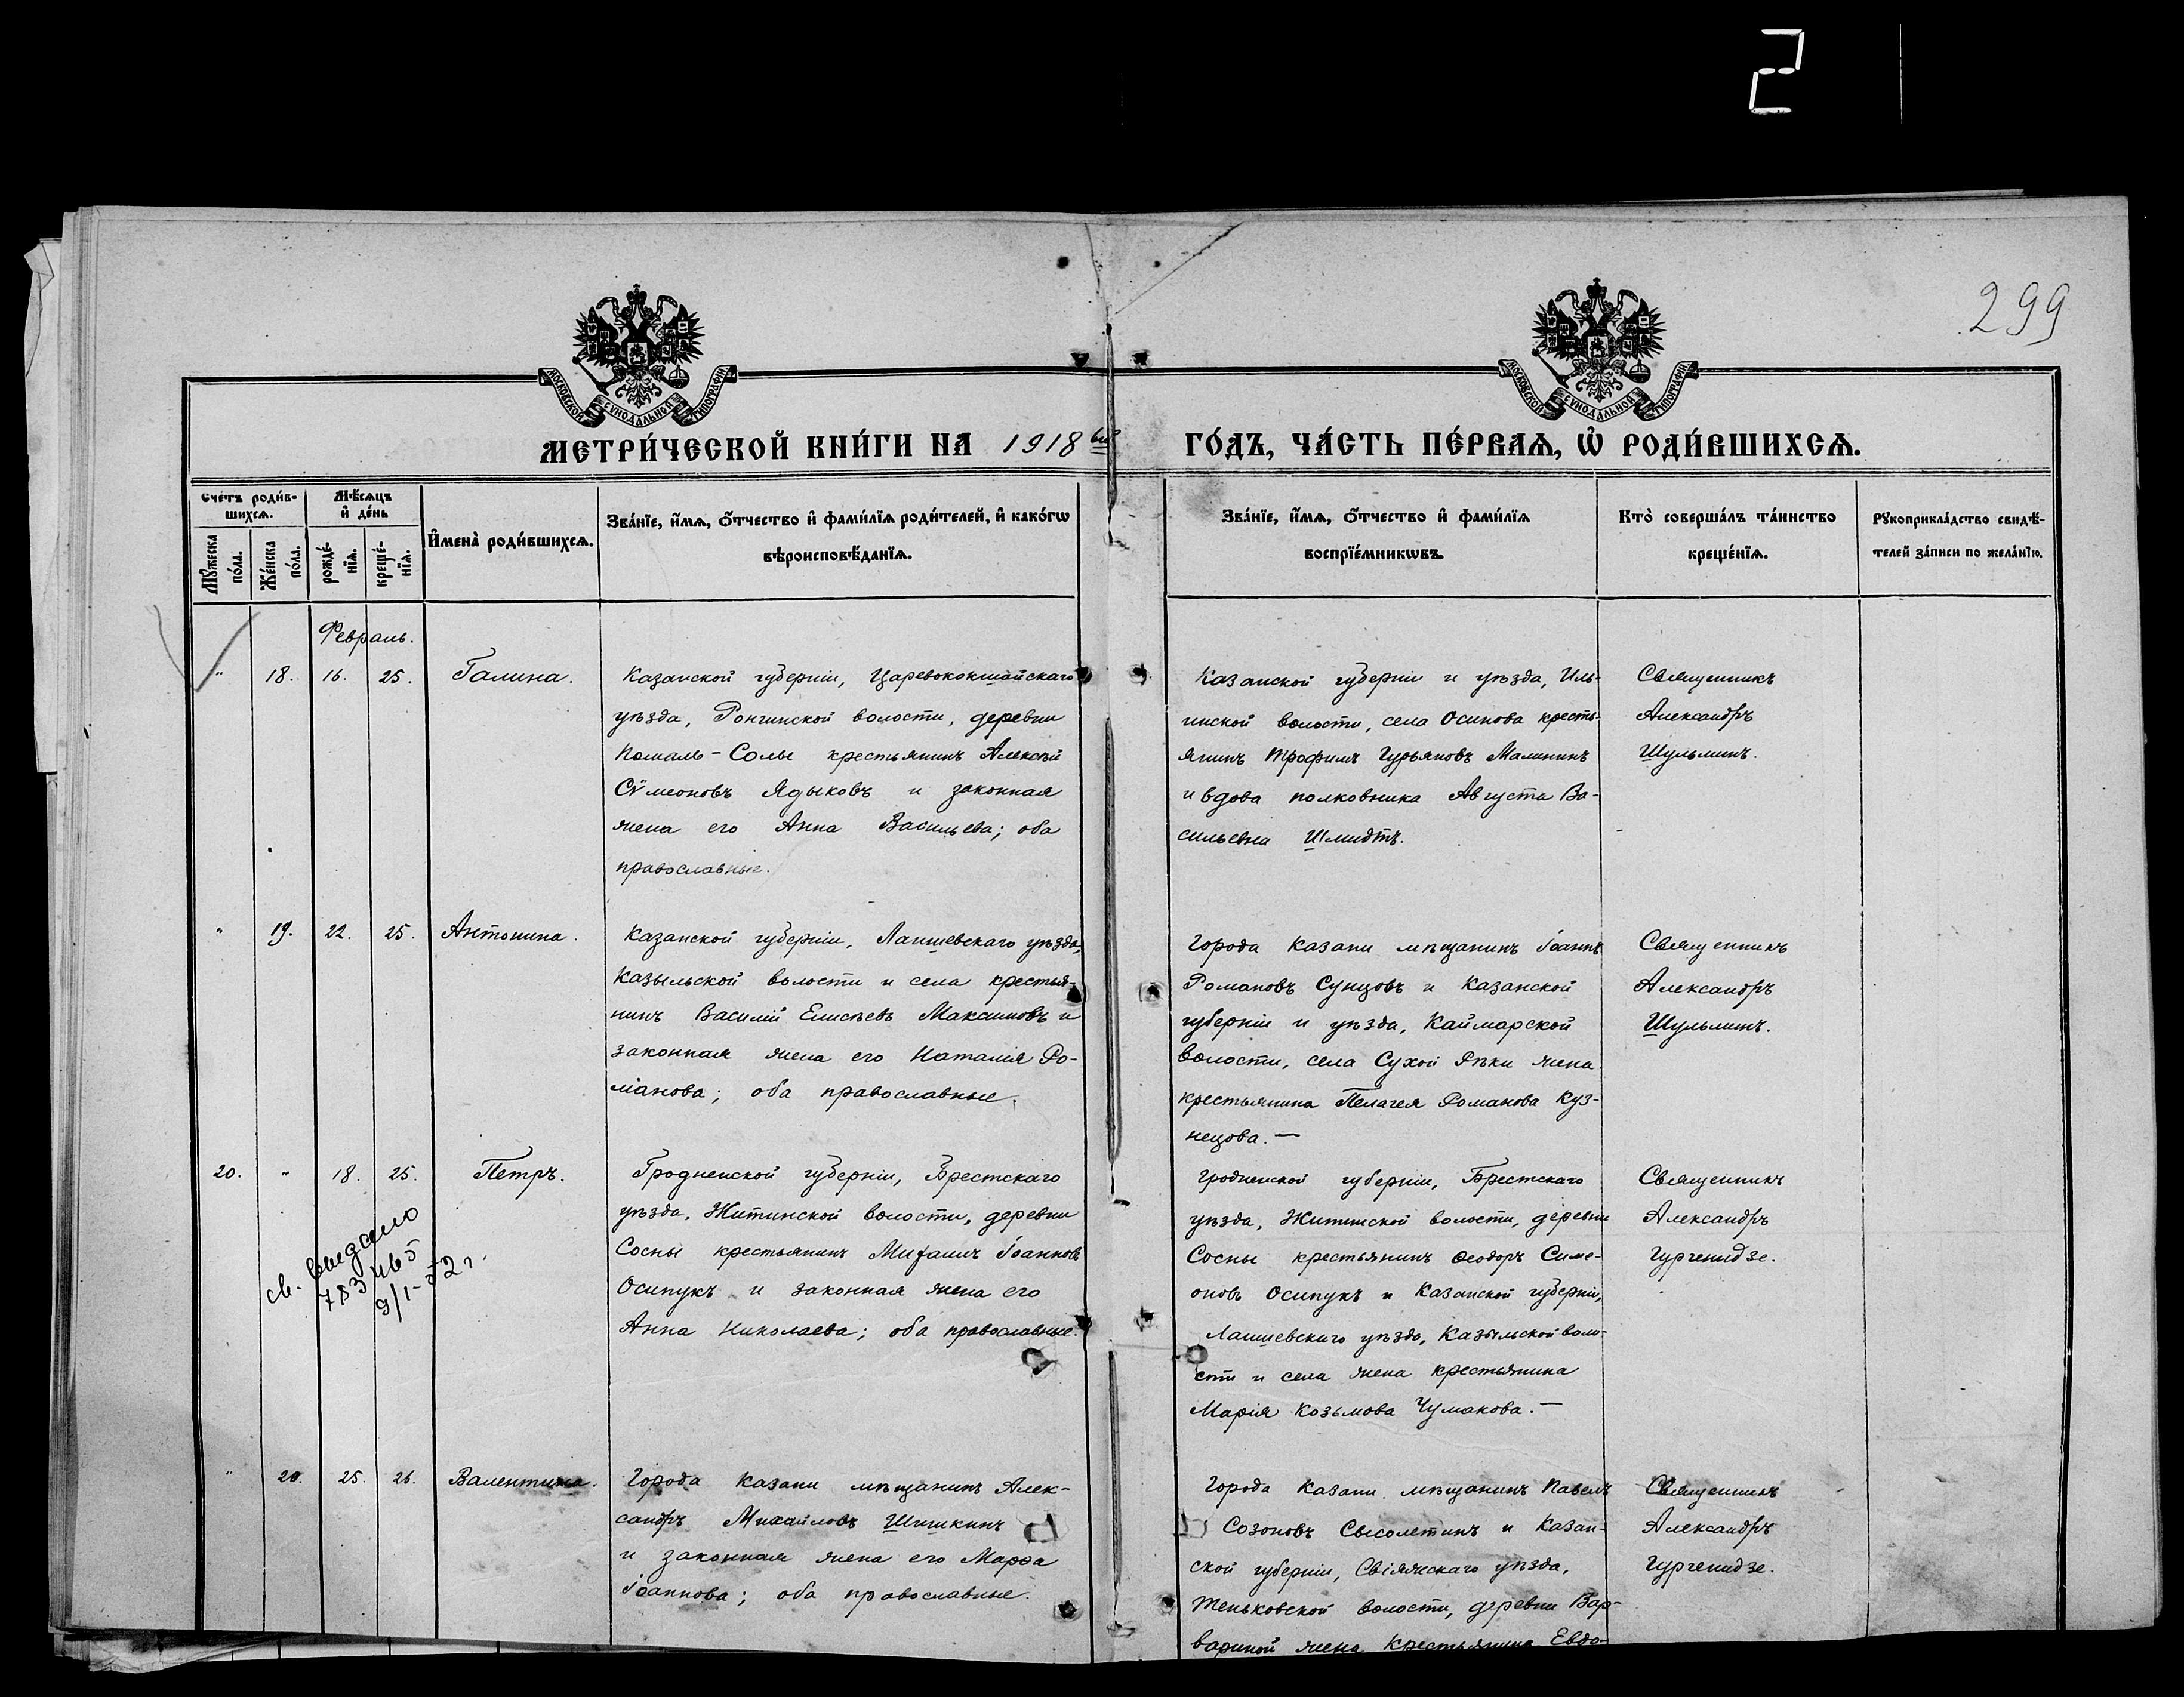 2
299
МОСКОВСКОЙ СѴНОДАЛЬНОЙ ТИПОГРАФІИ
МОСКОВСКОЙ СѴНОДАЛЬНОЙ ТИПОГРАФІИ
МЕТРИ́ЧЕСКОЙ КНИ́ГИ НА 1918 ГО́ДЪ, ЧА́СТЬ ПЕ́РВАѦ, Ѡ҆ РОДИ́ВШИХСѦ.
Сче́тъ роди́в-
шихсѧ.
Мѣ́сѧцъ
и҆ де́нь
Мꙋ́жеска
по́ла.
Же́нска
по́ла.
рожде́-
нїѧ.
креще́-
нїѧ.
И҆мена̀ роди́вшихсѧ.
Зва́нїе, и҆́мѧ, ѻ҆́тчество и҆ фами́лїѧ роди́телей, и҆ како́гѡ
вѣроисповѣ́данїѧ.
Зва́нїе, и҆́мѧ, ѻ҆́тчество и҆ фами́лїѧ
воспрїе́мникѡвъ.
Кто̀ соверша́лъ та́инство
креще́нїѧ.
Рꙋкоприкла́дство свидѣ́-
телей за́писи по жела́нїю.
Февраль.
" 18. 16. 25. Галина.
Казанской губерніи, Царевококшайскаго
уѣзда, Ронгинской волости, деревни
Помалъ-Солы крестьянинъ Алексѣй
Сѵмеоновъ Ядыковъ и законная
жена его Анна Васильева; оба
православные.
Казанской губерніи и уѣзда, Иль-
инской волости, села Осинова кресть-
янинъ Трофимъ Гурьяновъ Малининъ
и вдова полковника Августа Ва-
сильевна Шмидтъ.
Священникъ
Александръ
Шульминъ.
" 19. 22. 25. Антонина.
Казанской губерніи, Лаишевскаго уѣзда,
Казыльской волости и села крестья-
нинъ Василій Елисѣевъ Максимовъ и
законная жена его Наталія Ро-
манова; оба православные.
Города Казани мѣщанинъ Іоаннъ
Романовъ Сунцовъ и Казанской
губерніи и уѣзда, Каймарской
волости, села Сухой Рѣки жена
крестьянина Пелагея Романова Куз-
нецова. —
Священникъ
Александръ
Шульминъ.
20. " 18. 25. Петръ.
св. выдано
783465
9/1-52 г.
Гродненской губерніи, Брестскаго
уѣзда, Житинской волости, деревни
Сосны крестьянинъ Михаилъ Іоанновъ
Осипукъ и законная жена его
Анна Николаева; оба православные.
Гродненской губерніи, Брестскаго
уѣзда, Житинской волости, деревни
Сосны крестьянинъ Ѳеодоръ Симе-
оновъ Осипукъ и Казанской губерніи,
Лаишевскаго уѣзда, Казыльской воло-
сти и села жена крестьянина
Марія Козьмова Чумакова. —
Священникъ
Александръ
Гургенидзе.
" 20. 25. 26. Валентина.
Города Казани мѣщанинъ Алек-
сандръ Михайловъ Шишкинъ
и законная жена его Марѳа
Іоаннова; оба православные.
Города Казани мѣщанинъ Павелъ
Созоновъ Сысолетинъ и Казан-
ской губерніи, Свіяжскаго уѣзда,
Теньковской волости, деревни Вар-
вариной жена крестьянина Евдо-
Священникъ
Александръ
Гургенидзе.